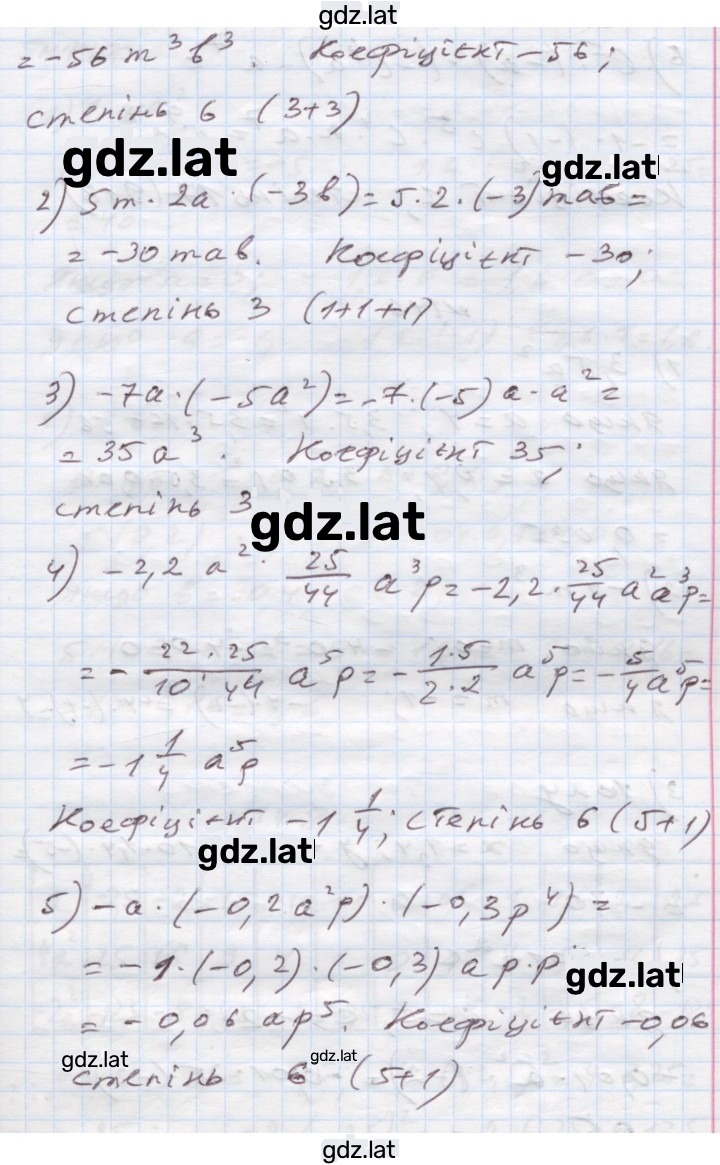 gdz.lat
= -56 m³b³. Коефіцієнт -56;
степінь 6 (3+3)
gdz.lat
gdz.lat
2) 5m · 2a · (-3b) = 5 · 2 · (-3) mab =
= -30 mab. Коефіцієнт -30;
степінь 3 (1+1+1)
3) -7a · (-5a²) = -7 · (-5) a · a² =
= 35 a³. Коефіцієнт 35;
степінь 3
gdz.lat
4) -2,2 a² · 25/44 a³p = -2,2 · 25/44 a² a³p =
= - 22 · 25/10 · 44 a⁵p = - 1·5/2·2 a⁵p = - 5/4 a⁵p =
= -1 1/4 a⁵p
Коефіцієнт -1 1/4; степінь 6 (5+1)
gdz.lat
5) -a · (-0,2a²p) · (-0,3p⁴) =
= -1 · (-0,2) · (-0,3) a p · p
gdz.lat
= -0,06 ap⁵. Коефіцієнт -0,06
gdz.lat
gdz.lat
степінь 6 (5+1)
gdz.lat